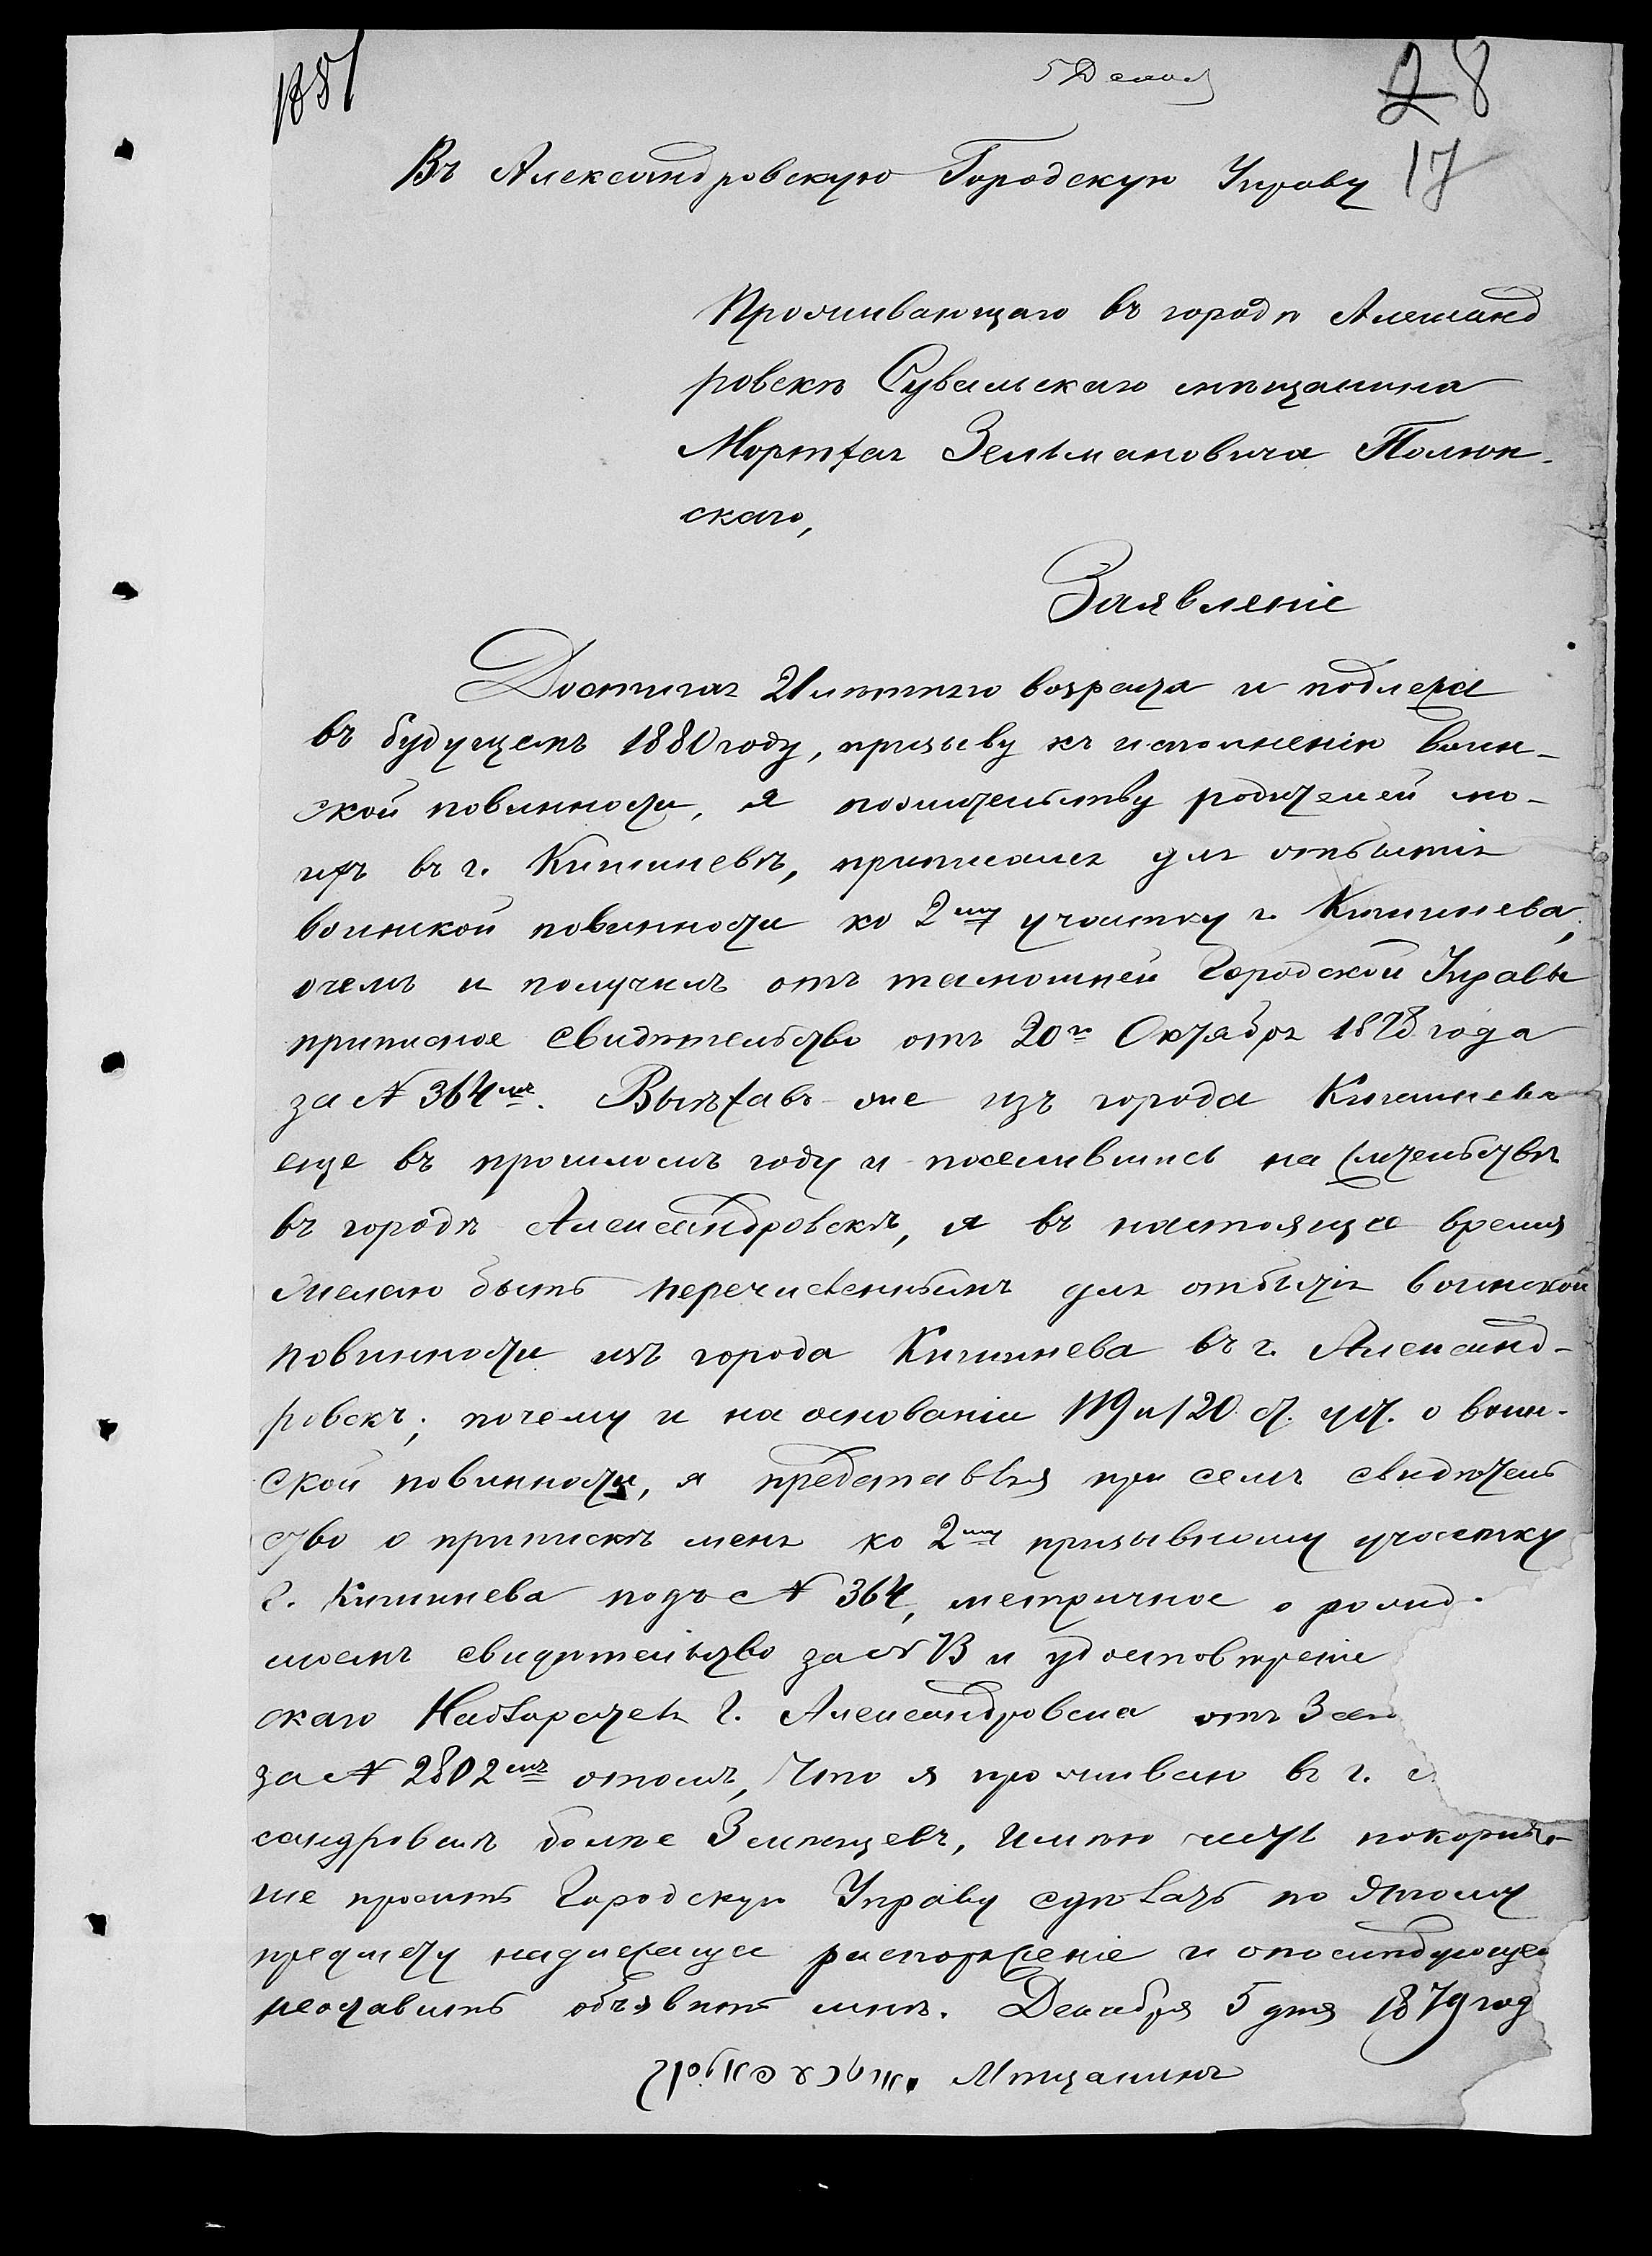 1881
5 Декаб
28
17
Въ Александровскую Городскую Управу
Проживающаго въ городѣ Александ
ровскѣ Сувалскаго мѣщанина
Мортхая Зельмановича Полюн-
скаго,
Заявленіе
Достигая 21 лѣтняго возраста и подлежа
въ будущемъ 1880 году, призыву къ исполненію воин-
ской повинности, я по жительству родителей мо-
ихъ въ г. Кишиневѣ, приписался для отбытія
воинской повинности ко 2му участку г. Кишинева,
очемъ и получилъ отъ тамошней Городской Управы
приписное свидѣтельство отъ 20го Октября 1878 года
за № 364мъ. Выѣхавъ же изъ города Кишинева
еще въ прошломъ году и поселившись на жительствѣ
въ городѣ Александровскѣ, я въ настоящее время
желаю быть перечисленнымъ для отбытія воинской
повинности изъ города Кишинева въ г. Александ-
ровскъ; почему и на основаніи 119 и 120 ст. уст. о воин-
ской повинности, я представляя при семъ свидѣтель
ство о припискѣ меня ко 2му призывному участку
г. Кишинева подъ № 364, метричное о рожд.
моемъ свидѣтельство за № 13 и удостовѣреніе
скаго Надзирателя г. Александровска отъ 3 сего
за № 2802мъ о томъ, что я проживаю въ г.
сандровскѣ болѣе 3 мѣсяцевъ, имѣю честь покорнѣ-
ше просить Городскую Управу сдѣлать по этому
предмету надлежащее распоряженіе и о послѣдующемъ
неоставить объявить мнѣ. Декабря 5 дня 1879 год
Мѣщанинъ